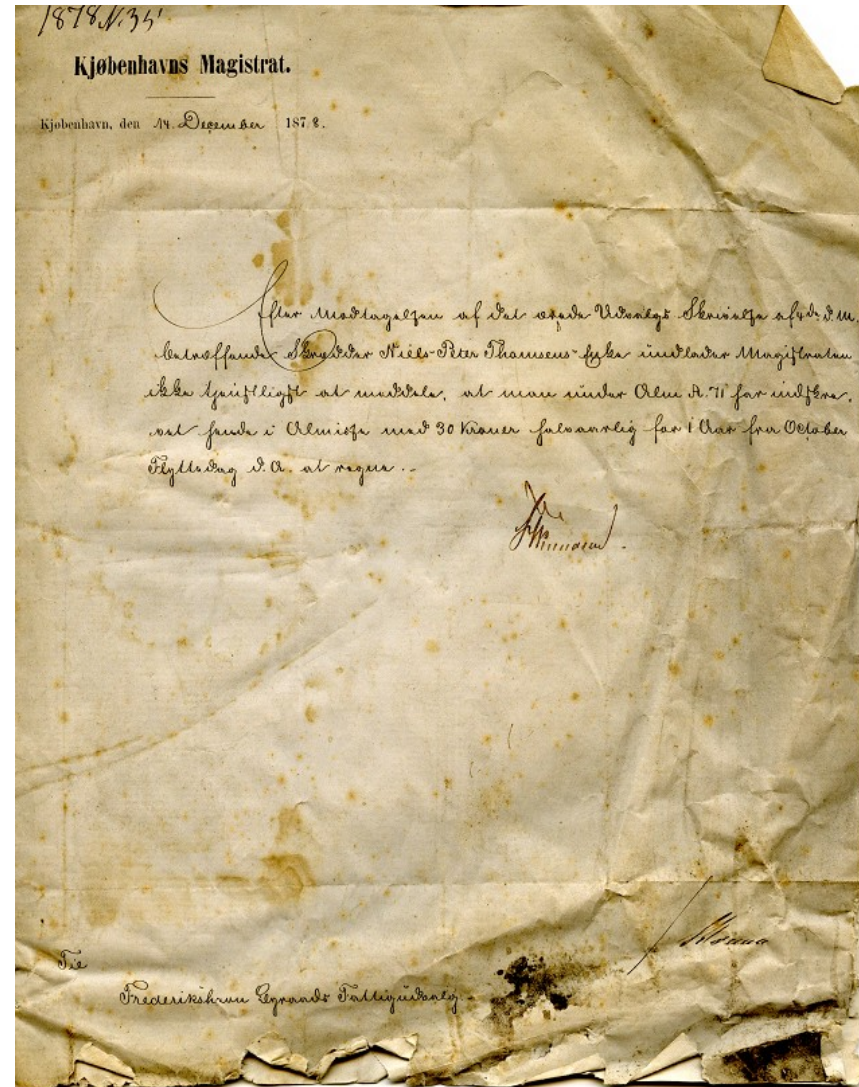 1878 N. 35
Kjøbenhavns Magistrat.
Kjøbenhavn, den 14. December 1878.
Efter Modtagelsen af det ærede Udvalgs Skrivelse af 4de d. M.
betræffende Skrædder Niels Peter Thomsens Enke undlader Magistraten
ikke tjenstligst at meddele, at man under Alm A. 71 har indskre-
vet hende i Almisse med 30 Kroner halvaarlig for 1 Aar fra October
Flyttedag d. A. at regne. -
Til
Frederikshavn Fattigudvalg.